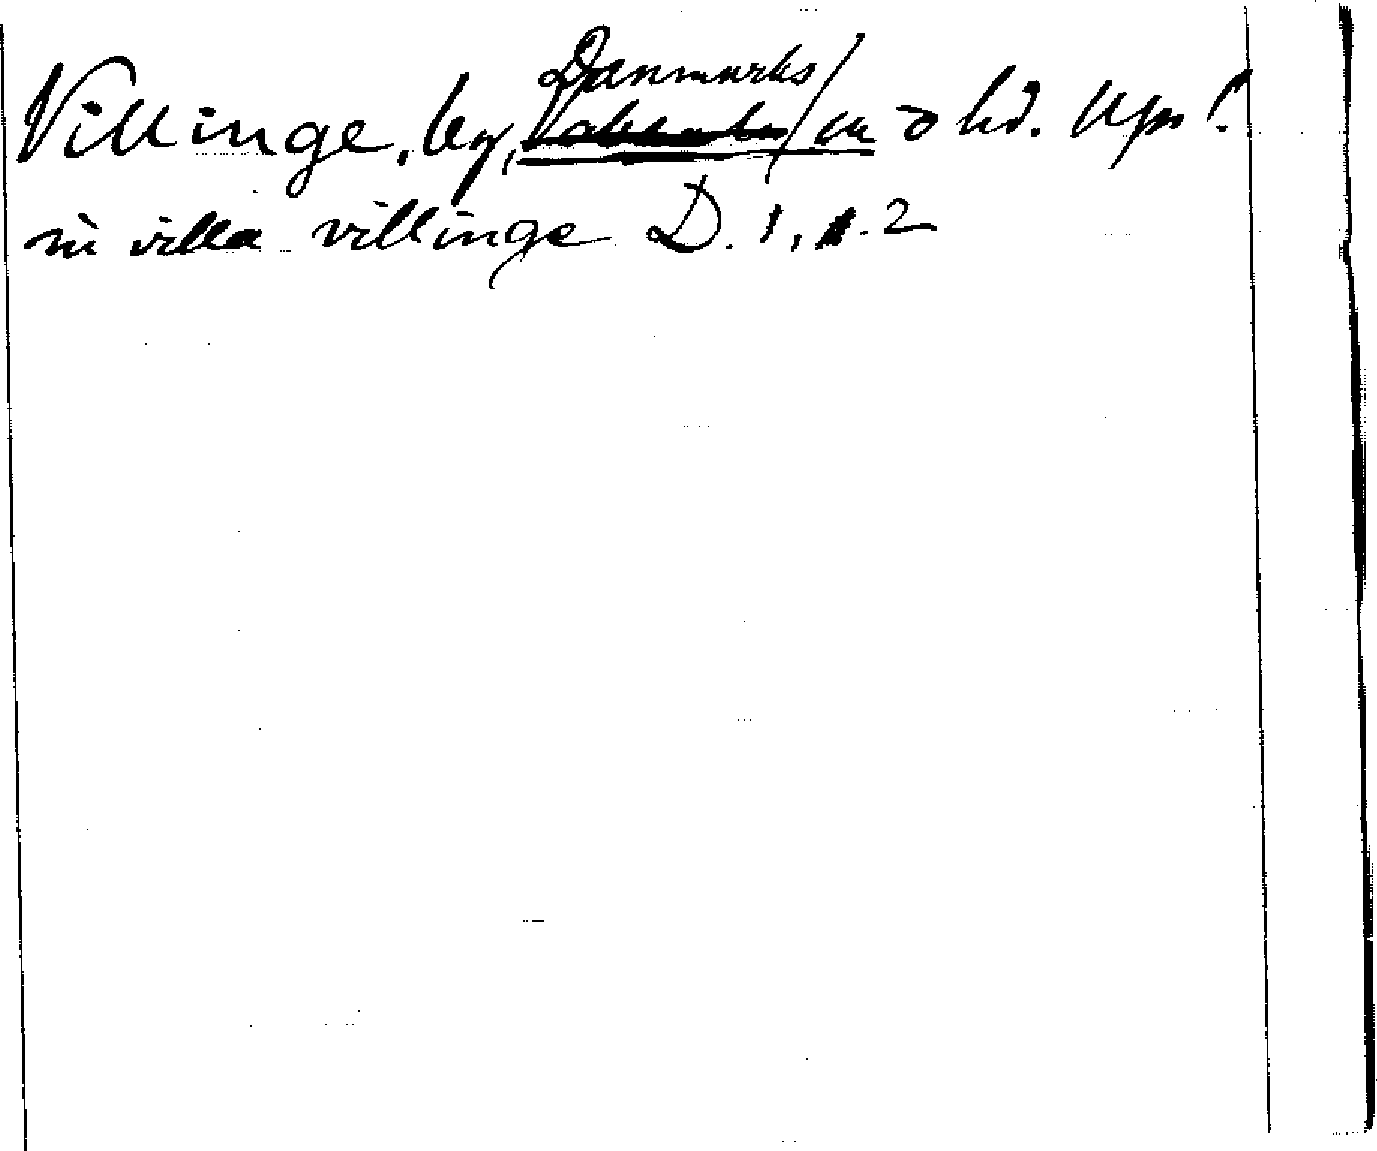 Villinge, by, Danmarks sn o hd. Upl.
in villa villinge D. 1, s. 2